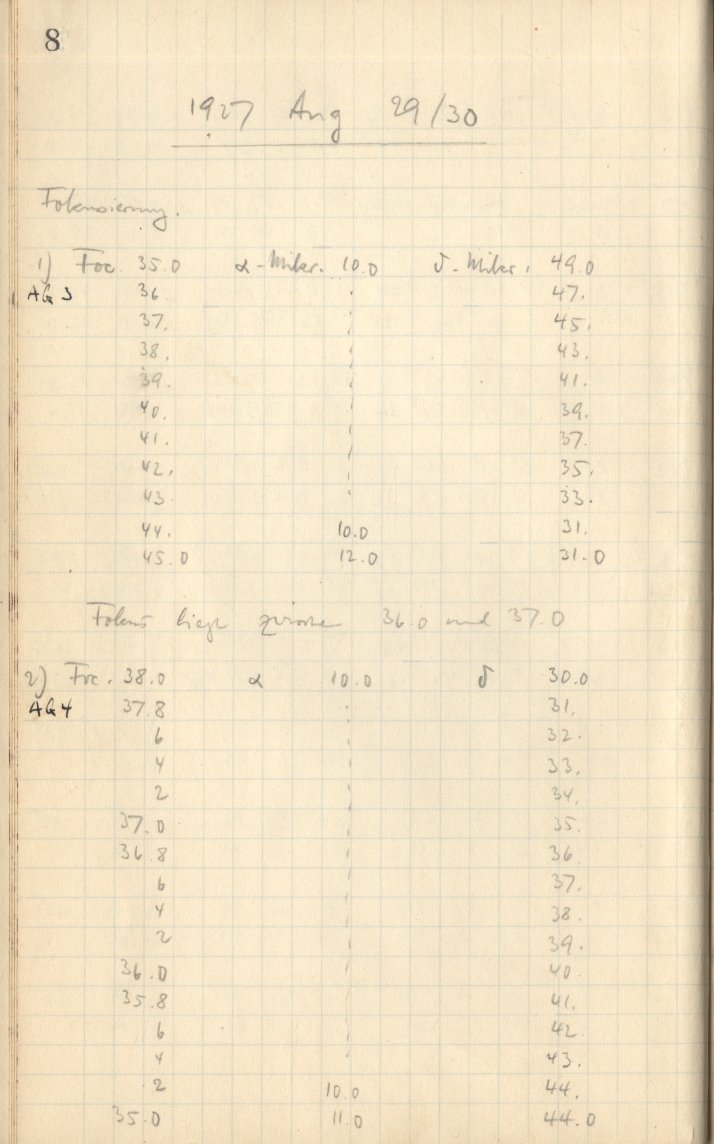 8
1927 Aug 29/30
Fokussierung.
1) Foc. 35.0 α-Mikr. 10.0 δ-Mikr. 49.0
AG 3 36 47.
37. 45.
38. 43.
39. 41.
40. 39.
41. 37.
42. 35.
43. 33.
44. 10.0 31.
45.0 12.0 31.0
Fokus liegt zwischen 36.0 und 37.0
2) Foc. 38.0 α 10.0 δ 30.0
AG 4 37.8 31.
6 32.
4 33.
2 34.
37.0 35.
36.8 36
6 37.
4 38.
2 39.
36.0 40.
35.8 41.
6 42
4 43.
2 10.0 44.
35.0 11.0 44.0